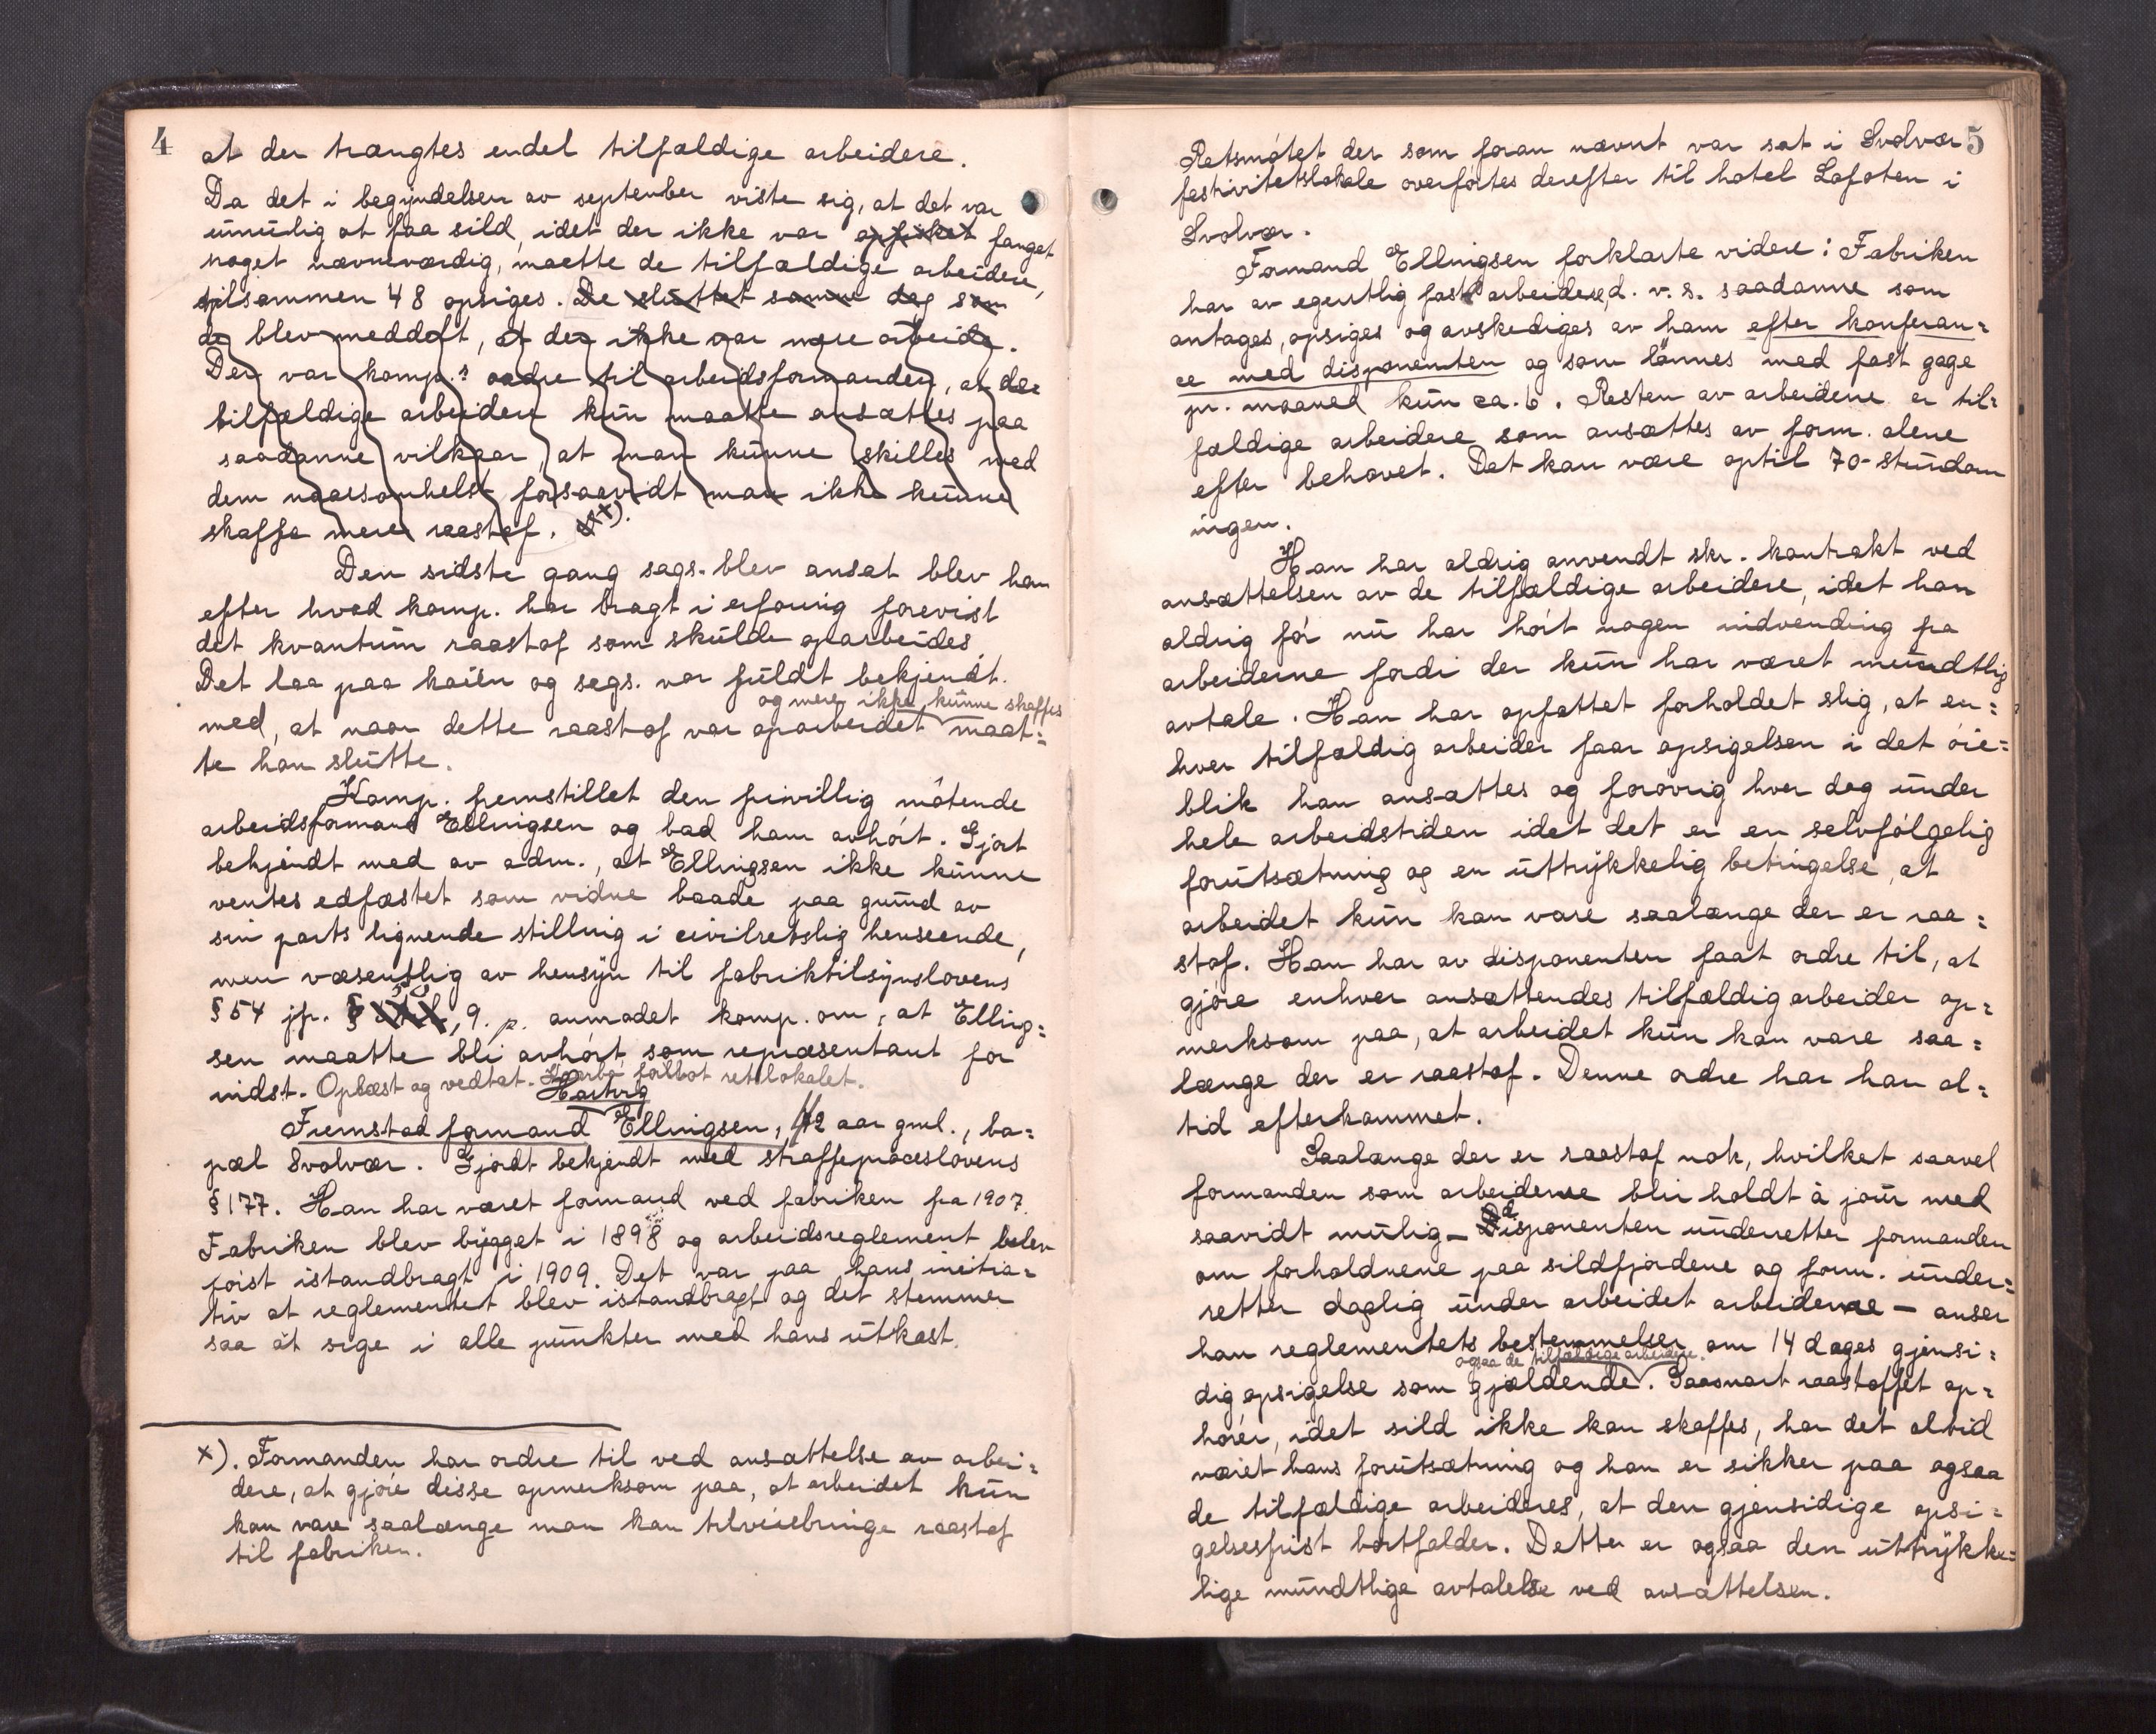 4
at der trængtes endel tilfældige arbeidere.
Da det i begyndelsen av september viste sig, at det var
umulig at faa sild, idet der ikke var opfisket fanget
noget nævneværdig, maatte de tilfældige arbeidere,
tilsammen 48 opsiges. De sluttet samme dag som
de blev meddelt, at der ikke var mere arbeide.
Der var komp.s ordre til arbeidsformanden, at de
tilfældige arbeidere kun maatte ansættes paa
saadanne vilkaar, at man kunne skilles med
dem naarsomhelst forsaavidt man ikke kunne
skaffe mere raastof. x).
Den sidste gang sags. blev ansat blev han
efter hvad komp. har bragt i erfaring forevist
det kvantum raastof som skulde oparbeides.
Det laa paa kaien og sags. var fuldt bekjendt
og mere ikke kunne skaffes
med, at naar dette raastof var oparbeidet maat=
te han slutte.
Komp. fremstillet den frivillig møtende
arbeidsformand Ellingsen og bad ham avhørt. Gjort
bekjendt med av adm., at Ellingsen ikke kunne
ventes edfæstet som vidne baade paa grund av
sin parts lignende stilling i civilretslig henseende,
men væsentlig av hensyn til fabriktilsynslovens
§ 54 jfr. § 9. p. anmodet komp. om, at Elling=
sen maatte bli avhørt som repræsentant for
indst. Oplæst og vedtat. forlot retslokalet.
Hartvig
Fremstod formand Ellingsen, 42 aar gml., bo=
pæl Svolvær. Gjordt bekjendt med straffeproceslovens
§ 177. Han har været formand ved fabriken fra 1907.
Fabriken blev bygget i 1898 og arbeidsreglement blev
først istandbragt i 1909. Det var paa hans initia=
tiv at reglementet blev istandbragt og det stemmer
saa at sige i alle punkter med hans utkast.
x). Formanden har ordre til ved ansættelse av arbei=
dere, at gjøre disse opmerksom paa, at arbeidet kun
kan vare saalænge man kan tilveiebringe raastof
til fabriken.
5
Retsmøtet der som foran nævnt var sat i Svolvær
festivitetslokale overførtes derefter til hotel Lofoten i
Svolvær.
Formand Ellingsen forklarte videre: Fabriken
har av egentlig fast arbeidere, d. v. s. saadanne som
antages, opsiges og avskediges av ham efter konferan=
ce med disponenten og som lønnes med fast gage
pr. maaned kun ca. 6. Resten av arbeiderne er til=
fældige arbeidere som ansættes av form. alene
efter behovet. Det kan være optil 70 - stundom
ingen.
Han har aldrig anvendt skr. kontrakt ved
ansættelsen av de tilfældige arbeidere, idet han
aldrig før nu har hørt nogen indvending fra
arbeiderne fordi der kun har været mundtlig
avtale. Han har opfattet forholdet slig, at en=
hver tilfældig arbeider faar opsigelsen i det øie=
blik han ansættes og forøvrig hver dag under
hele arbeidstiden idet det er en selvfølgelig
forutsætning og en uttrykkelig betingelse, at
arbeidet kun kan vare saalænge der er raa=
stof. Han har av disponenten faat ordre til, at
gjøre enhver ansættendes tilfældig arbeider op=
merksom paa, at arbeidet kun kan vare saa=
længe der er raastof. Denne ordre har han al=
tid efterkommet.
Saalænge der er raastof nok, hvilket saavel
formanden som arbeiderne blir holdt à jour med
saavidt mulig - Disponenten underretter formanden
om forholdnene paa sildfjordene og form. under=
retter daglig under arbeidet arbeiderne - anser
han reglementets bestemmelser om 14 dages gjensi=
ogsaa de tilfældige arbeidere.
dig opsigelse som gjældende. Saasnart raastoffet op=
hører, idet sild ikke kan skaffes, har det altid
været hans forutsætning og han er sikker paa ogsaa
de tilfældige arbeideres, at den gjensidige opsi=
gelsesfrist bortfalder. Dette er ogsaa den uttrykke=
lige mundtlige avtalelse ved ansættelsen.